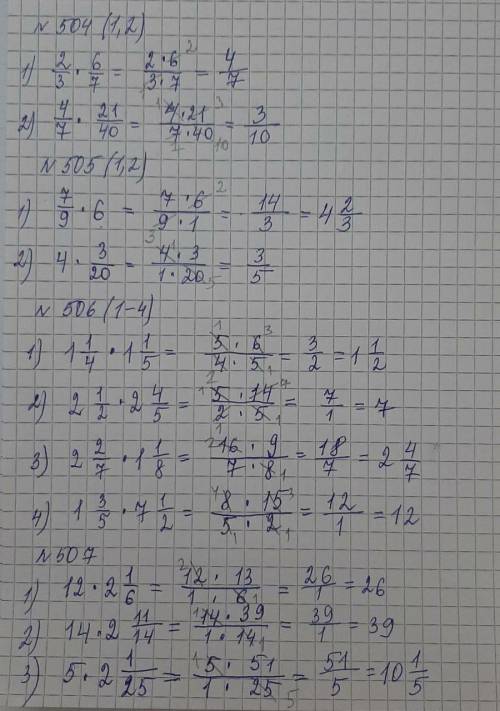 № 504 (1,2)
1) 2/3 · 6/7 = 2·6/3·7 = 4/7
2) 4/7 · 21/40 = 4·21/7·40 = 3/10
№ 505 (1,2)
1) 7/9 · 6 = 7·6/9·1 = 14/3 = 4 2/3
2) 4 · 3/20 = 4·3/1·20 = 3/5
№ 506 (1-4)
1) 1 1/4 · 1 1/5 = 5·6/4·5 = 3/2 = 1 1/2
2) 2 1/2 · 2 4/5 = 5·14/2·5 = 7/1 = 7
3) 2 2/7 · 1 1/8 = 16·9/7·8 = 18/7 = 2 4/7
4) 1 3/5 · 7 1/2 = 8·15/5·2 = 12/1 = 12
№ 507
1) 12 · 2 1/6 = 12·13/1·6 = 26/1 = 26
2) 14 · 2 11/14 = 14·39/1·14 = 39/1 = 39
3) 5 · 2 1/25 = 5·51/1·25 = 51/5 = 10 1/5